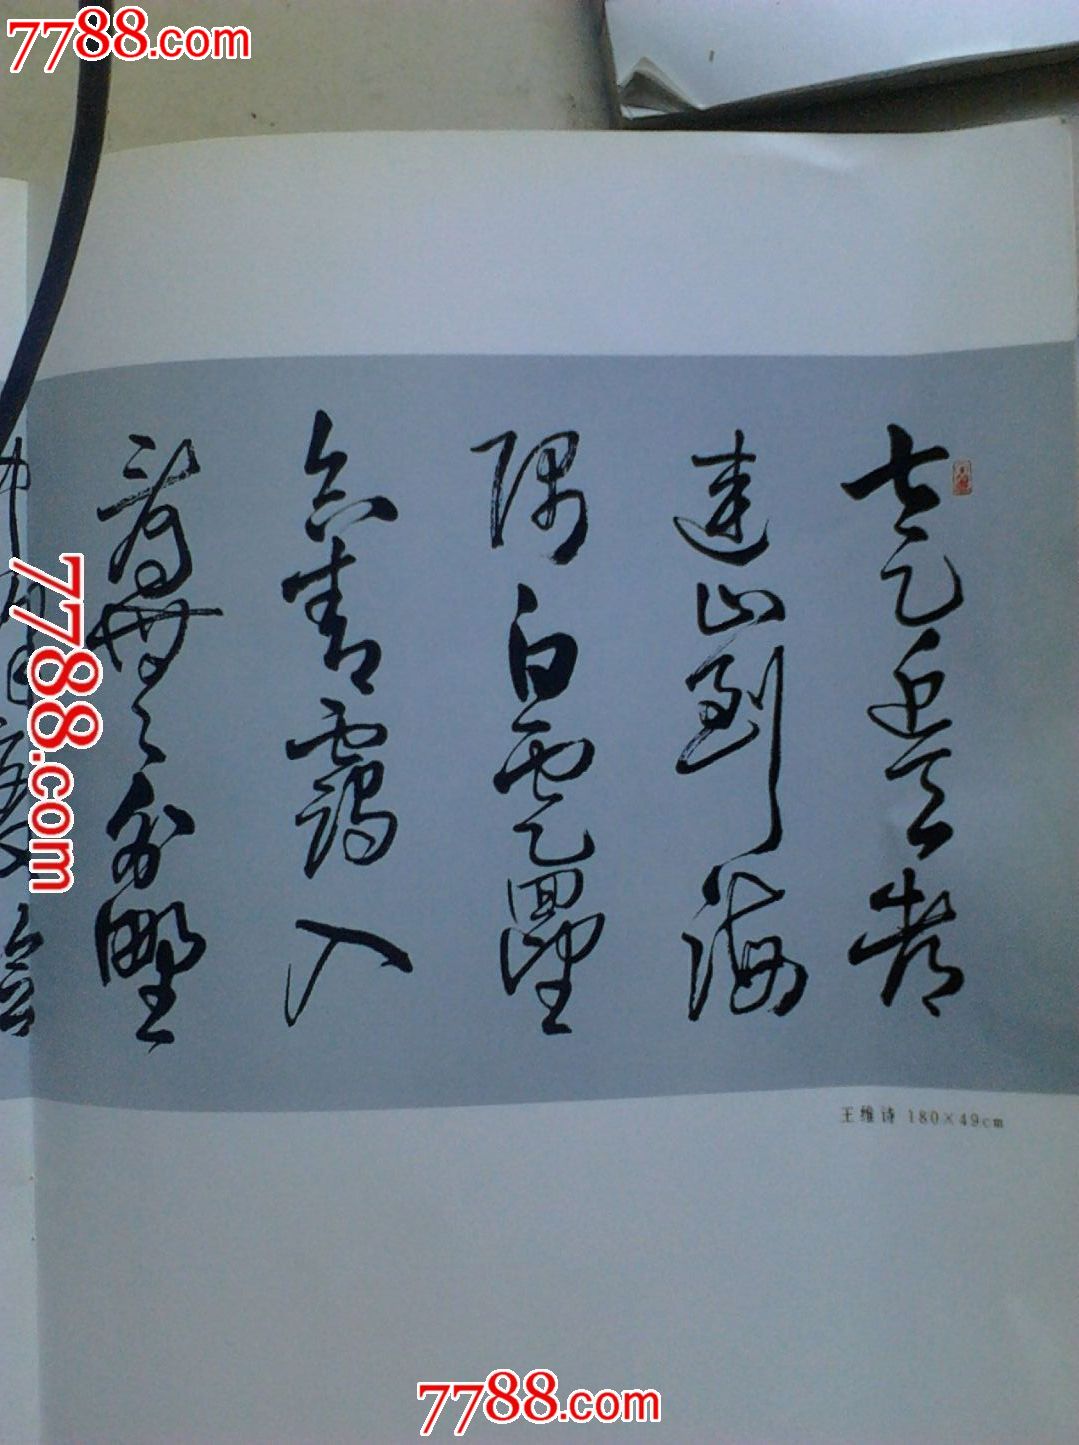 7788.com
太乙近天都
連山到海
隅白雲回望
合青靄入
看無分野
7788.com
王维诗 180×49cm
7788.com